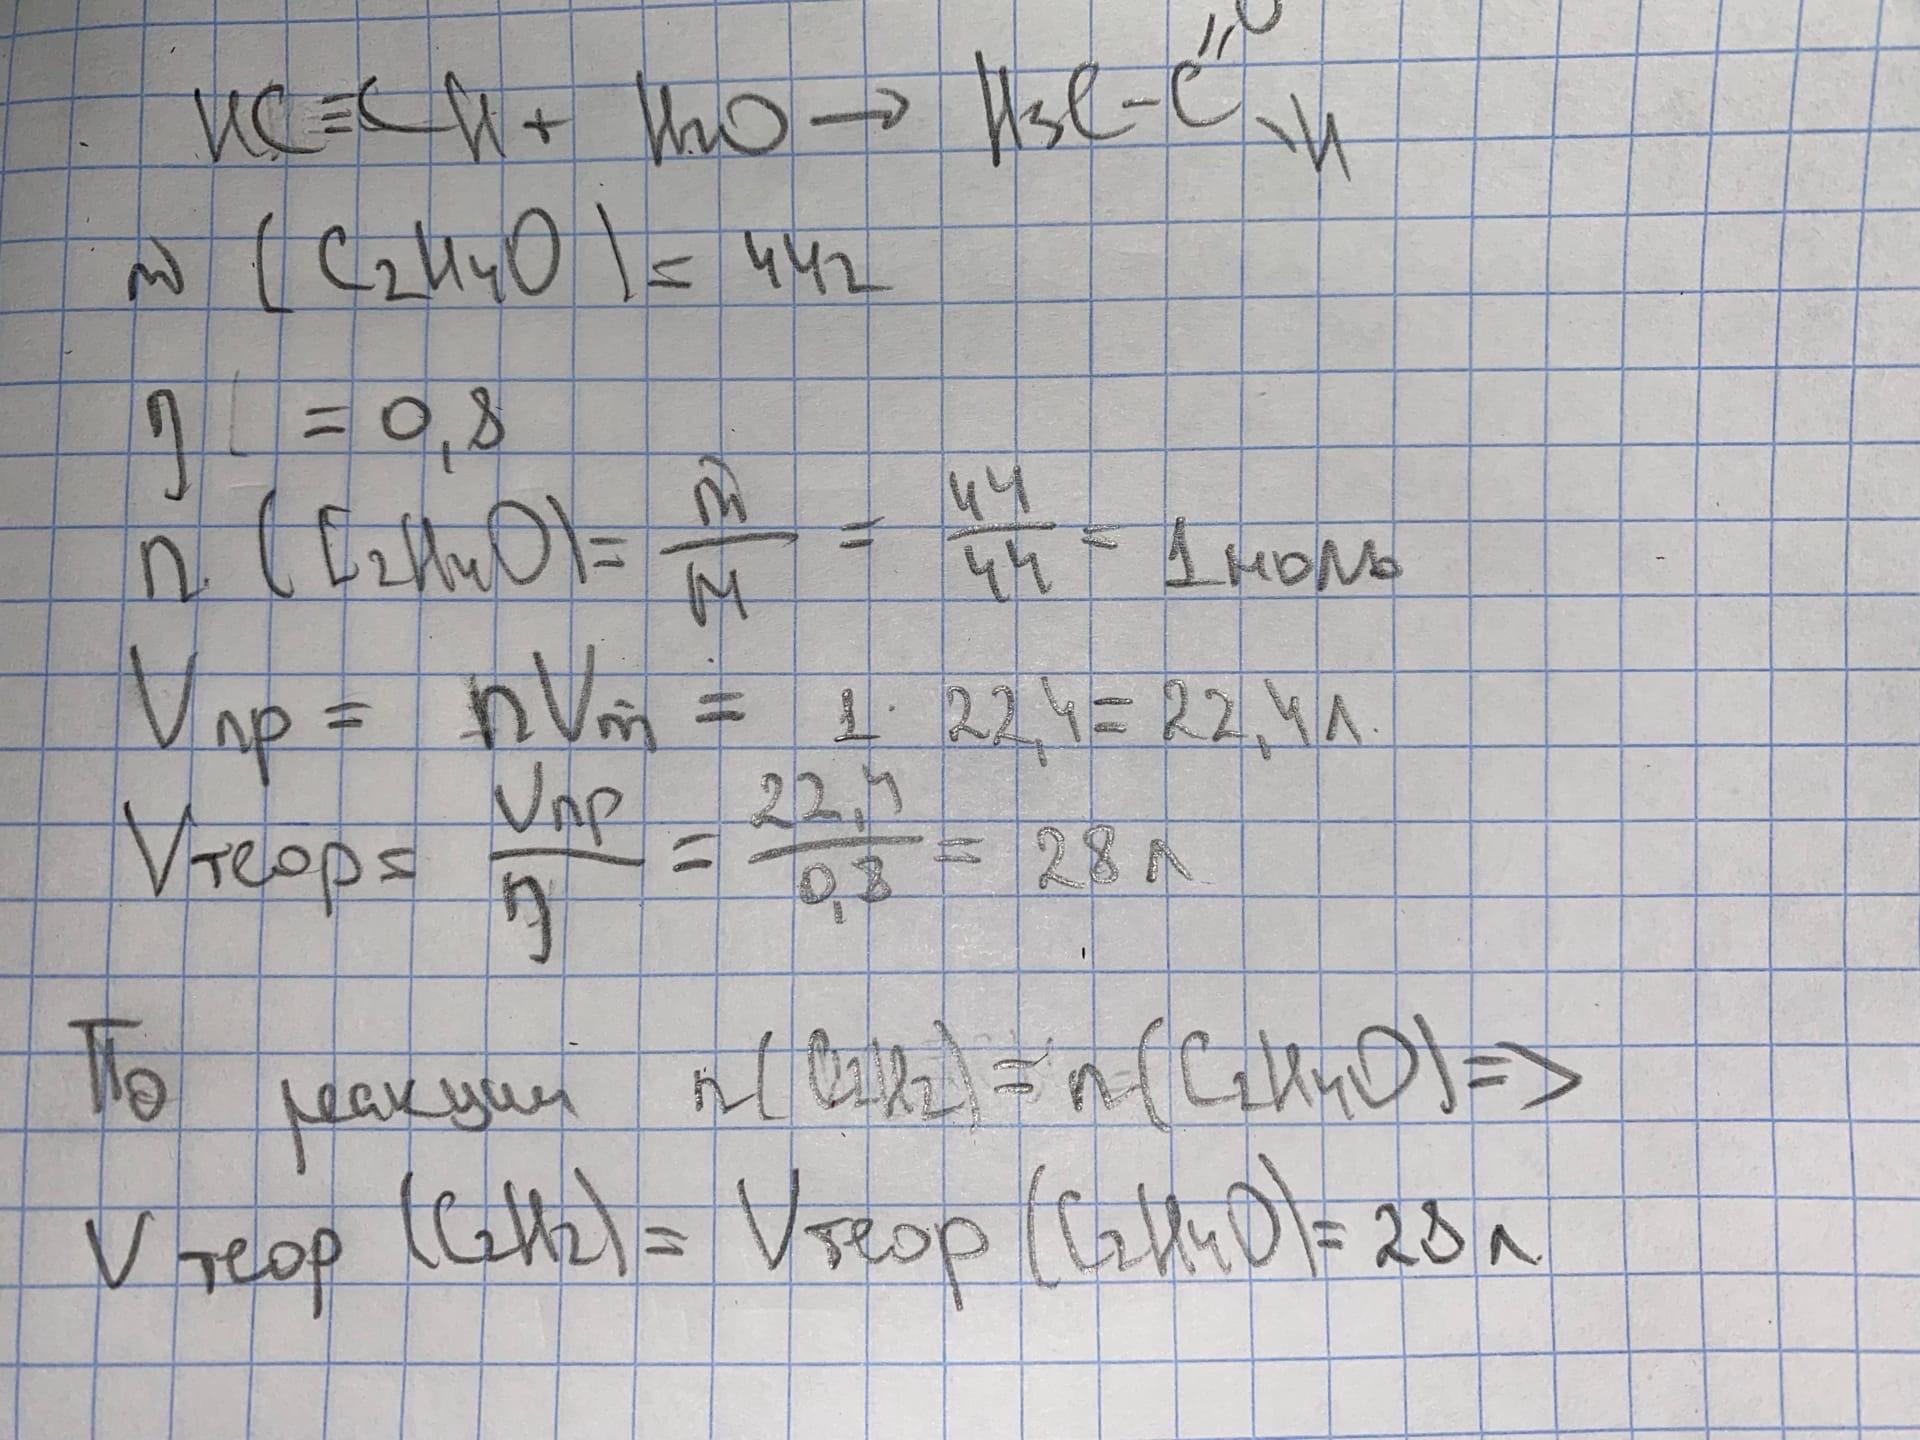 HC≡CH + H2O → H3C-C=O-H
m (C2H4O) = 44г
η = 0,8
n (C2H4O) = m/M = 44/44 = 1 моль
Vпр = nVm = 1 · 22,4 = 22,4 л.
Vтеор = Vпр/η = 22,4/0,8 = 28 л
По реакции n(C2H2) = n(C2H4O) =>
Vтеор (C2H2) = Vтеор (C2H4O) = 28 л